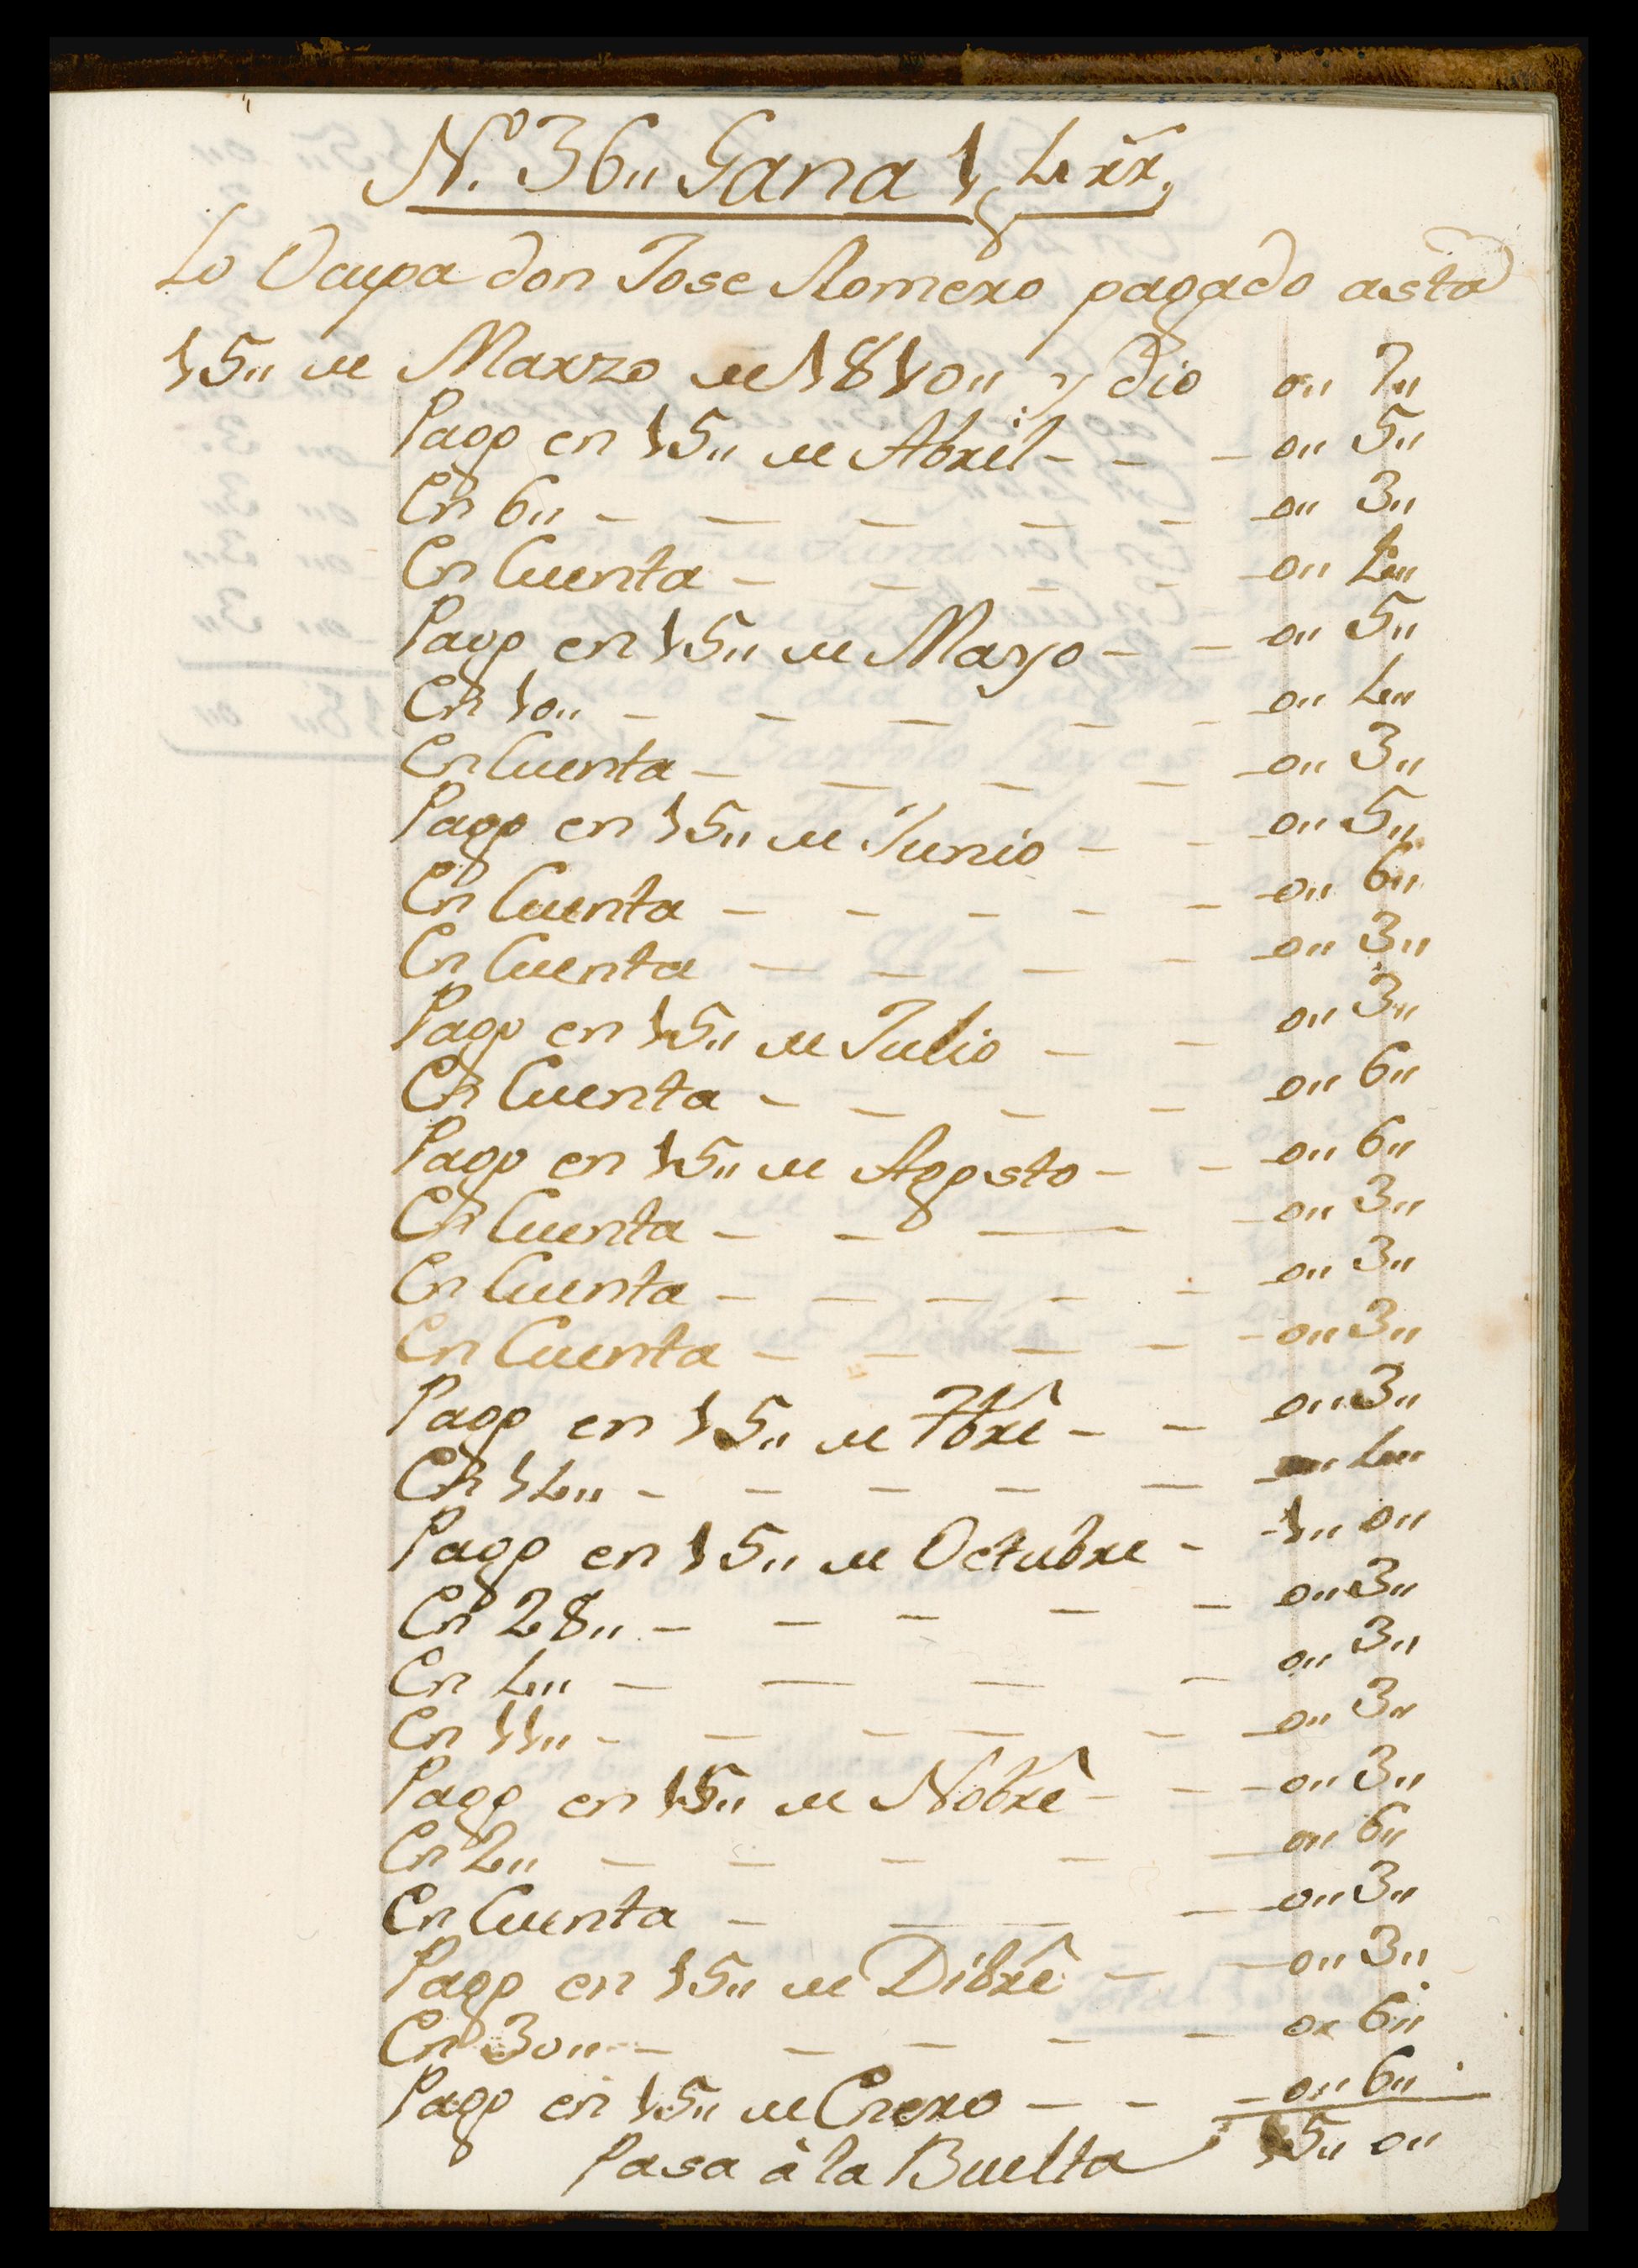 N.º 36,, Gana 1 p 4 rr.
Lo Ocupa don Jose Romero pagado asta
15,, de Marzo de 1810,, y dio 0,, 7,,
Pago en 15,, de Abril - - - 0,, 5,,
En 6,, - - - - - 0,, 3,,
En Cuenta - - - - 0,, 4,,
Pago en 15,, de Mayo - - 0,, 5,,
En 10,, - - - - - 0,, 4,,
En Cuenta - - - - 0,, 3,,
Pago en 15,, de Junio - - 0,, 5,,
En Cuenta - - - - - 0,, 6,,
En Cuenta - - - - 0,, 3,,
Pago en 15,, de Julio - - 0,, 3,,
En Cuenta - - - - 0,, 6,,
Pago en 15,, de Agosto - - 0,, 6,,
En Cuenta - - - - 0,, 3,,
En Cuenta - - - - - 0,, 3,,
En Cuenta - - - - 0,, 3,,
Pago en 15,, de 7brê - - 0,, 3,,
En 14,, - - - - - 0,, 4,,
Pago en 15,, de Octubre - 1,, 0,,
En 28,, - - - - - 0,, 3,,
En 4,, - - - - 0,, 3,,
En 11,, - - - - - 0,, 3,,
Pago en 15,, de Nobrê - - 0,, 3,,
En 2,, - - - - - 0,, 6,,
En Cuenta - - - - 0,, 3,,
Pago en 15,, de Dibrê - - 0,, 3,,
En 30,, - - - - - 0,, 6,,
Pago en 15,, de Enero - - - 0,, 6,,
Pasa à la Buelta 15,, 0,,